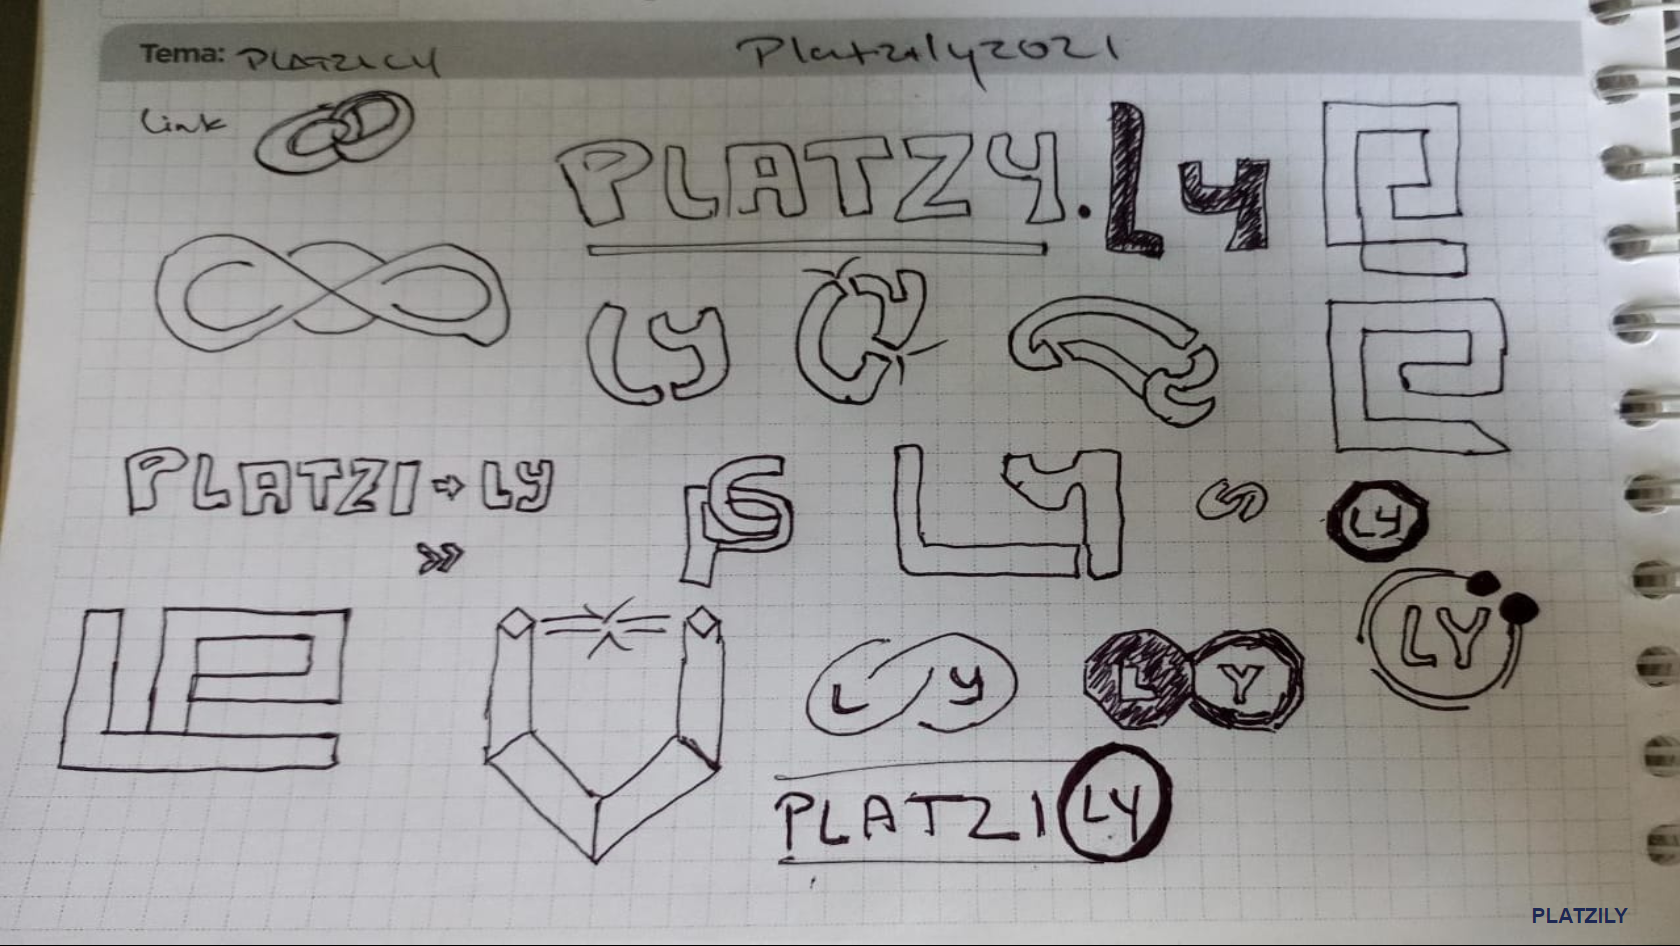 Tema: PLATZILY
Platzily2021
Link
PLATZY.LY
LY
PLATZI→LY
LY
LY
LY
L Y
L Y
PLATZI LY
PLATZILY